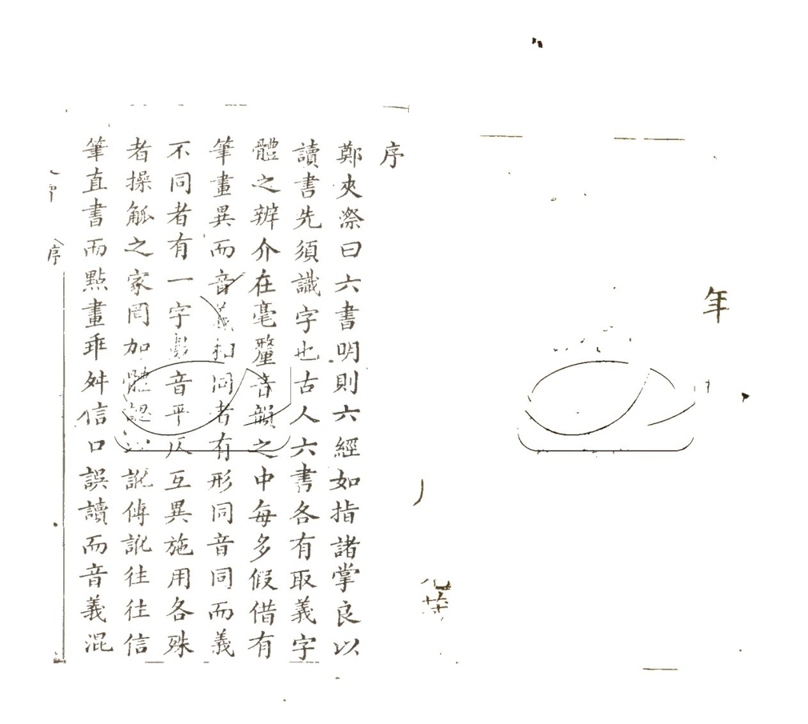 年
序
鄭夾漈曰六書明則六經如指諸掌良以
讀書先須識字也古人六書各有取義字
體之辨介在毫釐音韻之中每多假借有
筆畫異而音義相同者有形同音同而義
不同者有一字數音平仄互異施用各殊
者操觚之家罔加體認以訛傳訛往往信
筆直書而點畫乖舛信口誤讀而音義混
序